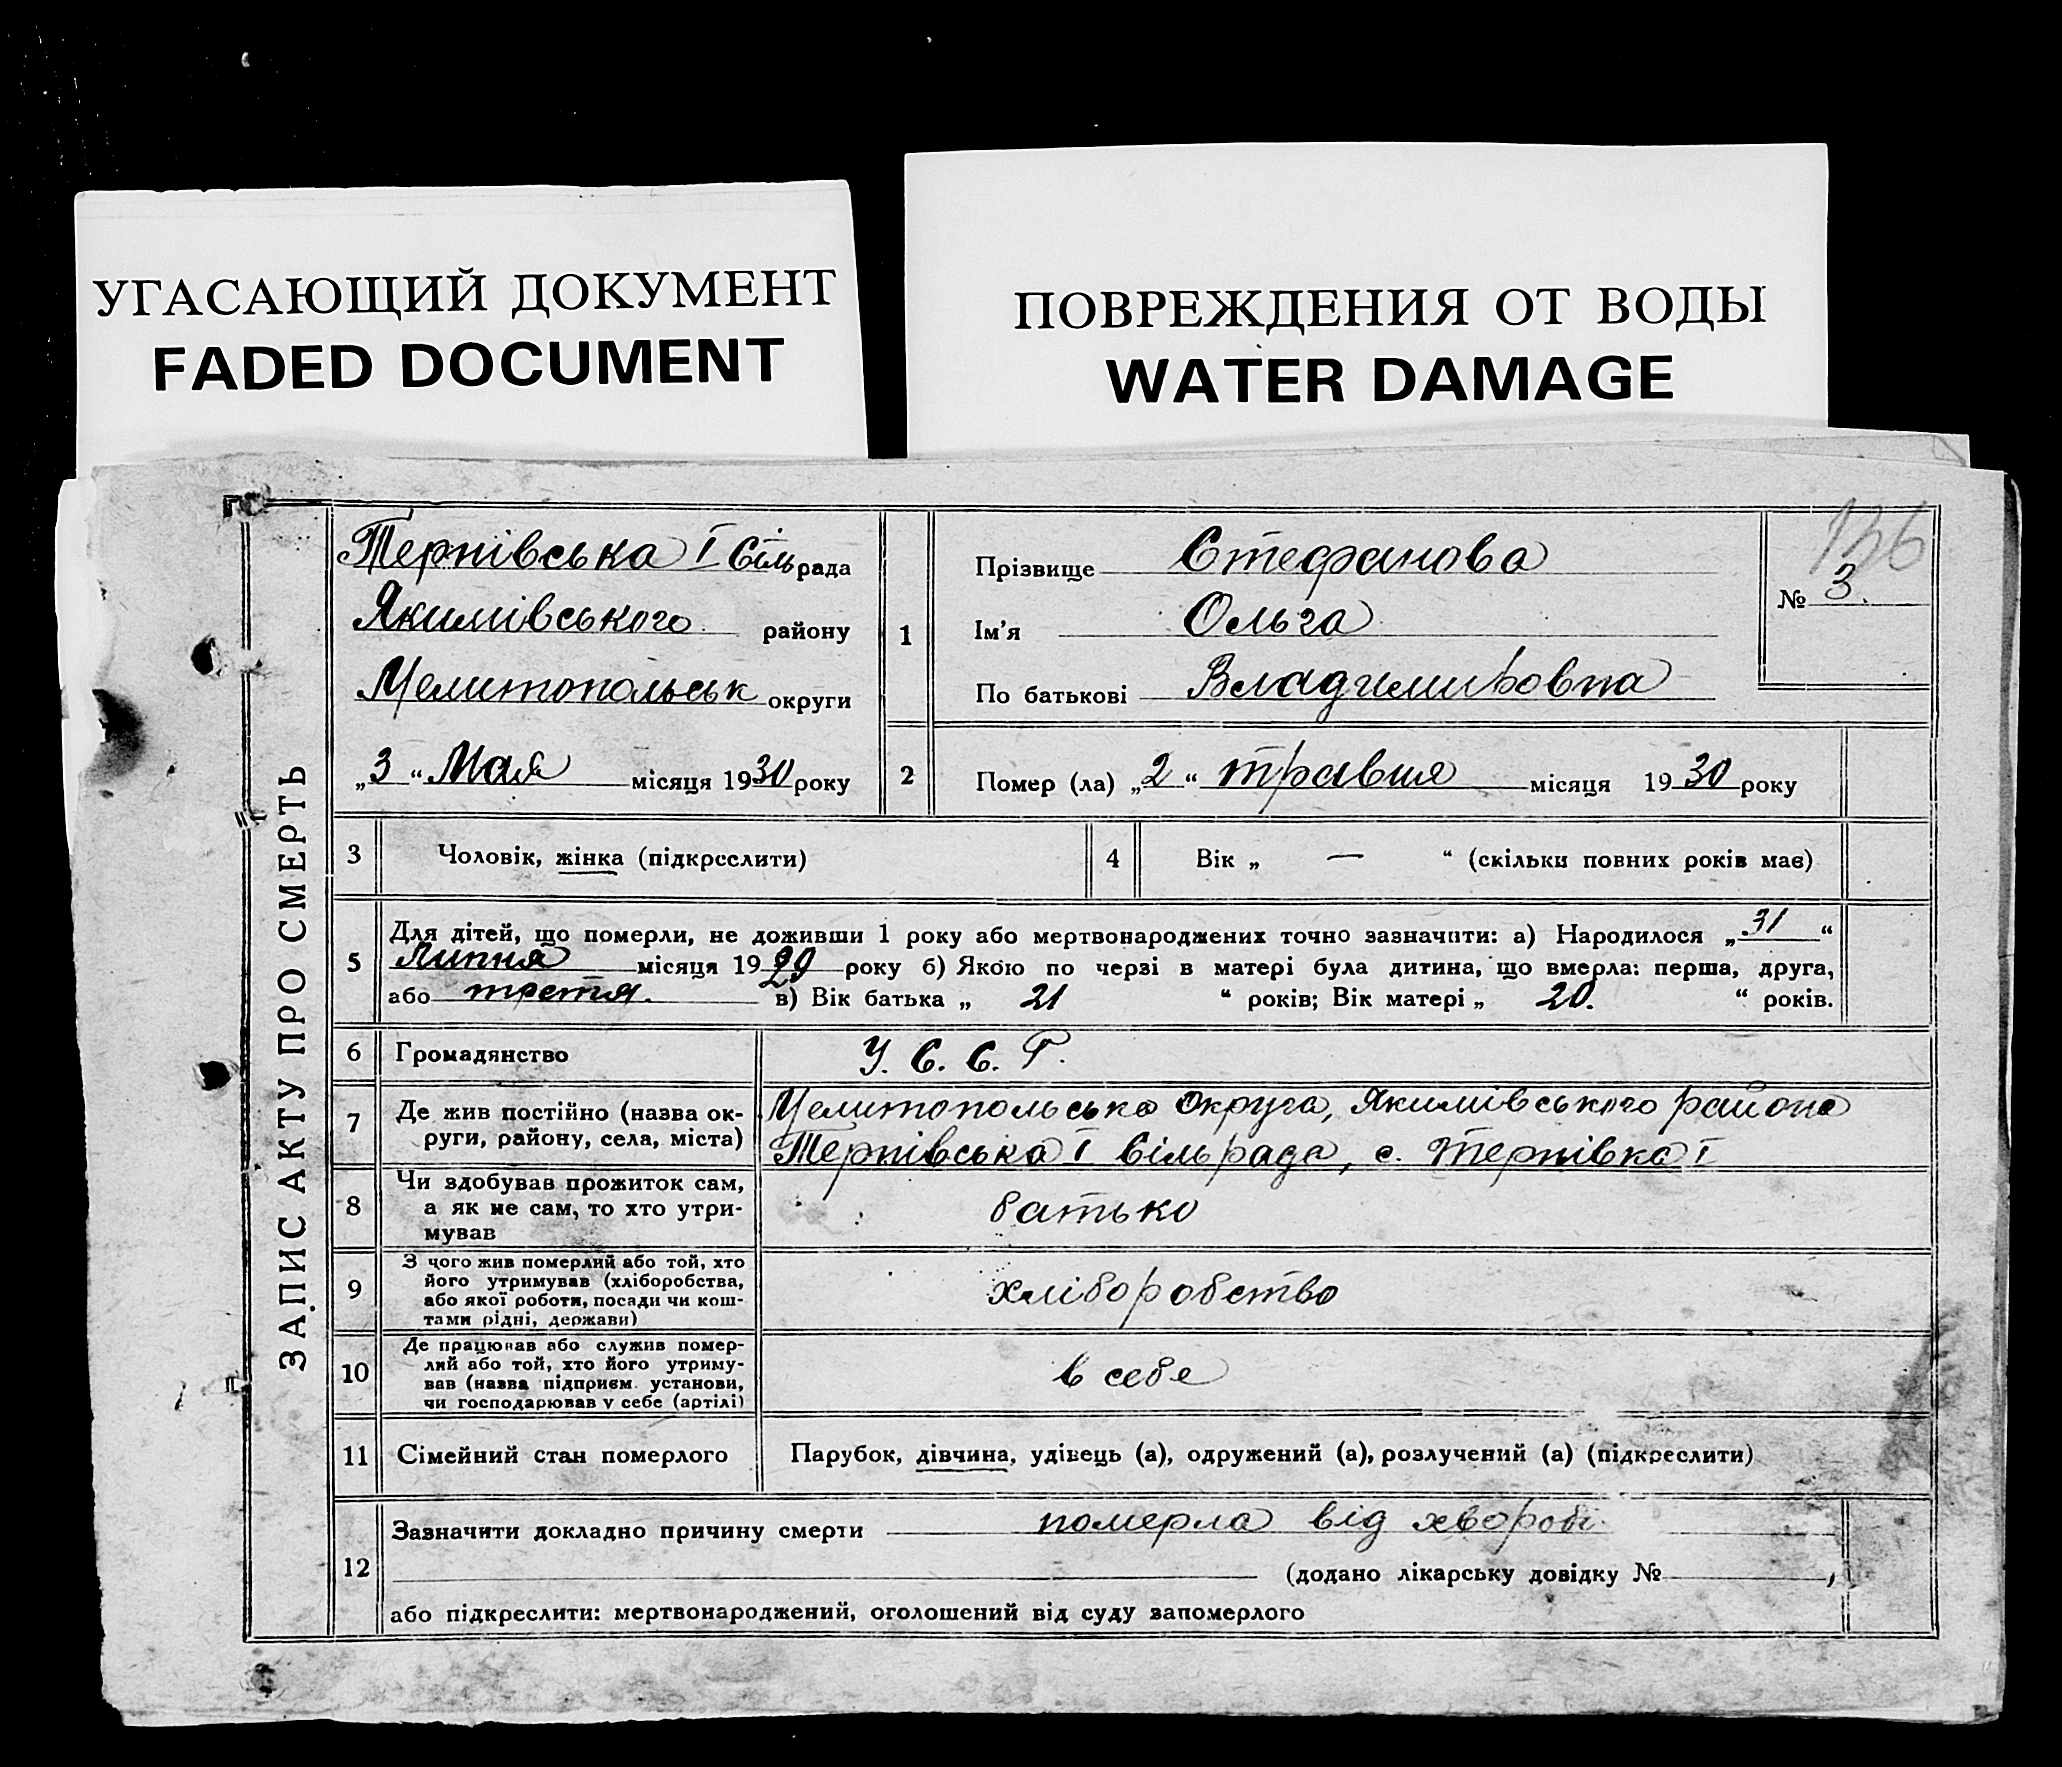 УГАСАЮЩИЙ ДОКУМЕНТ
FADED DOCUMENT
ПОВРЕЖДЕНИЯ ОТ ВОДЫ
WATER DAMAGE
ЗАПИС АКТУ ПРО СМЕРТЬ
Терпівська I Сільрада
Якимівського району
Мелитопольськ округи
„3“ Мая місяця 1930 року
1
Прізвище Стефанова
Ім'я Ольга
По батькові Владимировна
136
№ 3.
2
Помер (ла) „2“ травня місяця 1930 року
3 Чоловік, жінка (підкреслити)
4 Вік „ — “ (скільки повних років має)
5 Для дітей, що померли, не доживши 1 року або мертвонароджених точно зазначити: а) Народилося „31“
Липня місяця 1929 року б) Якою по черзі в матері була дитина, що вмерла: перша, друга,
або третя. в) Вік батька „ 21 “ років; Вік матері „ 20. “ років.
6 Громадянство У. С. С. Р.
7 Де жив постійно (назва ок-
руги, району, села, міста)
Мелитопольська округа, Якимівського района
Терпівська I Сільрада, с. Терпівка I
8 Чи здобував прожиток сам,
а як не сам, то хто утри-
мував
батько
9 З чого жив померлий або той, хто
його утримував (хліборобства,
або якої роботи, посади чи кош-
тами рідні, держави)
хліборобство
10 Де працював або служив помер-
лий або той, хто його утриму-
вав (назва підприєм. установи,
чи господарював у себе (артілі)
в себе
11 Сімейний стан померлого Парубок, дівчина, удівець (а), одружений (а), розлучений (а) (підкреслити)
12 Зазначити докладно причину смерти померла від хвороби
(додано лікарську довідку № ,
або підкреслити: мертвонароджений, оголошений від суду запомерлого